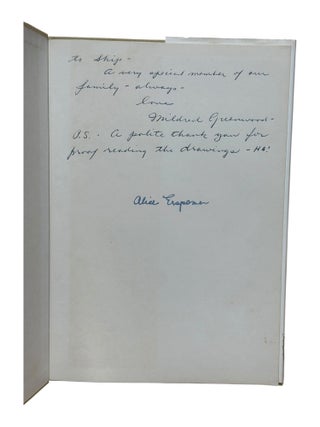 to Skip -
A very special member of our
family - always -
love
Mildred Greenwood -
P.S. A polite thank you for
proof reading the drawings - HA!
Alice